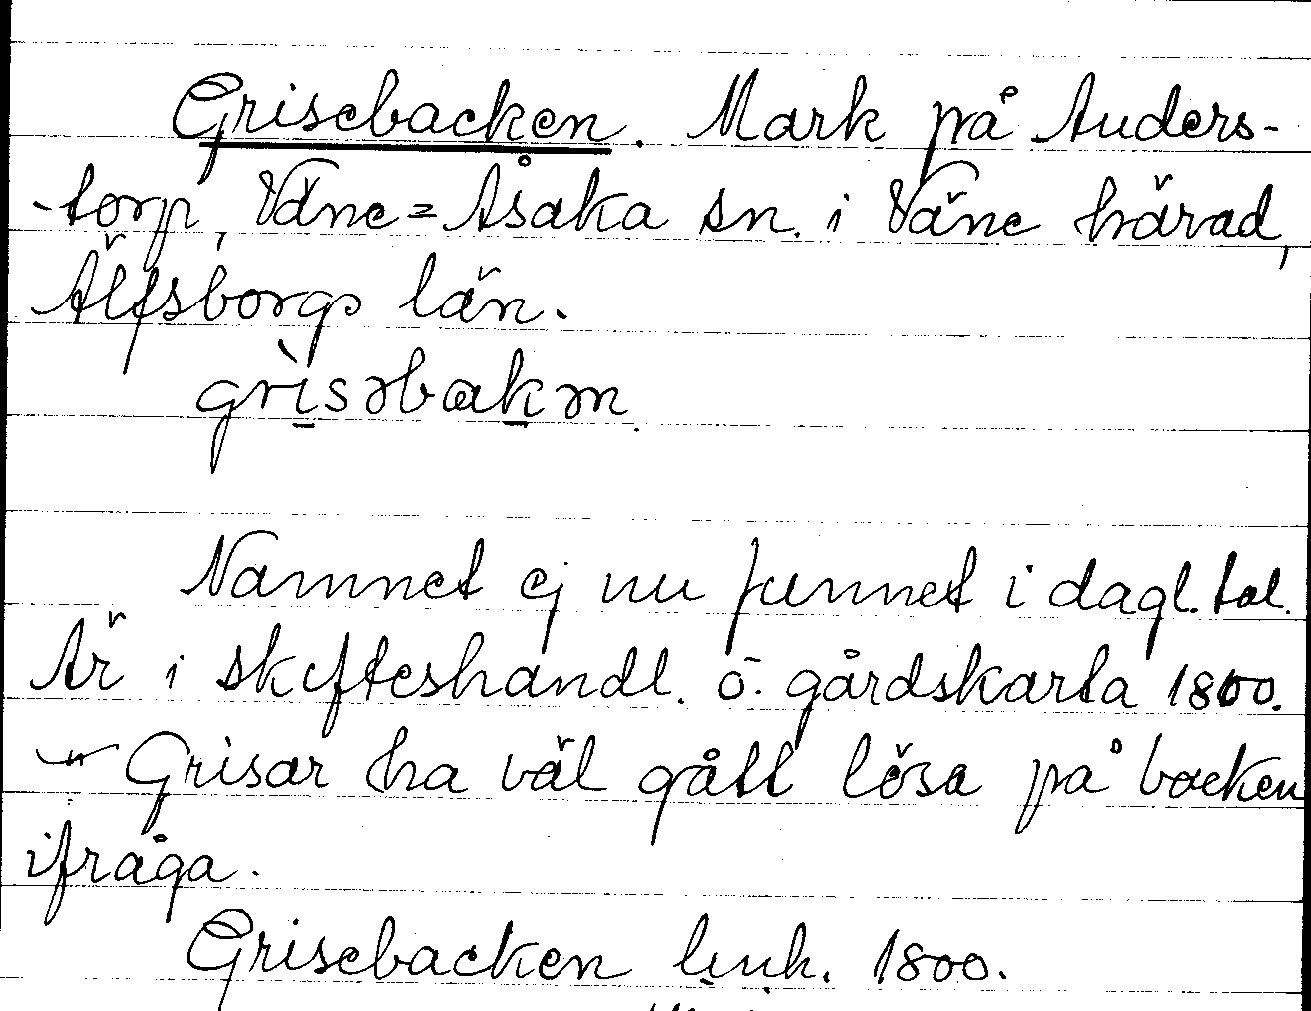 Grisebacken. Mark på Anders-
-torp, Väne=Åsaka sn. i Väne härad,
Älfsborgs län.
grìsəbakən
Namnet ej nu funnet i dagl. tal.
Är i skifteshandl. o. gårdskarta 1800.
Grisar ha väl gått lösa på backen
ifråga.
Grisebacken 1800.